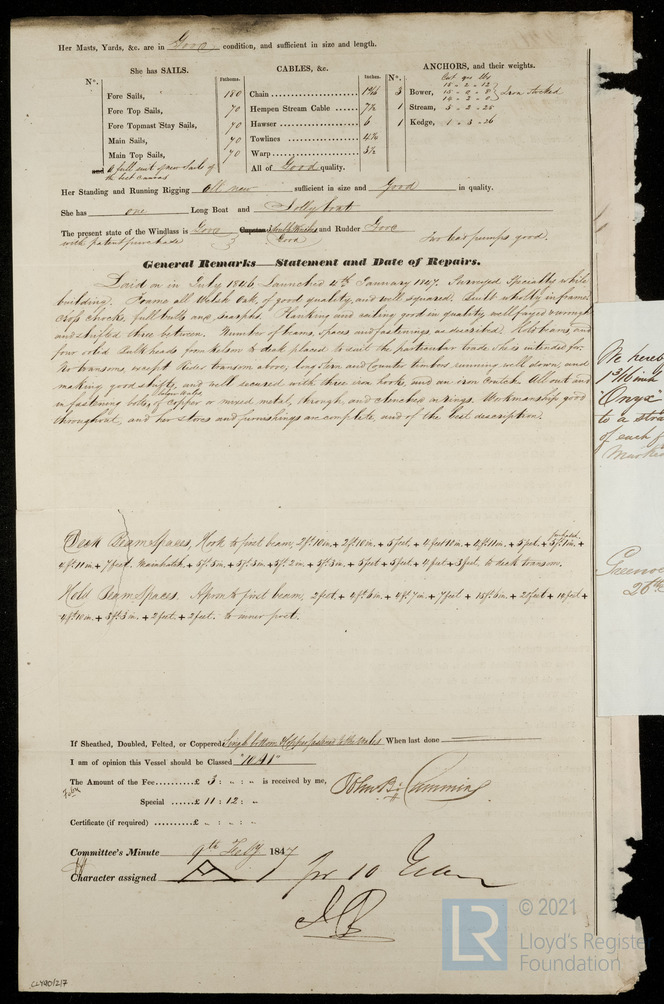 Her Masts, Yards, &c. are in Good condition, and sufficient in size and length.
She has SAILS.
CABLES, &c.
ANCHORS, and their weights.
Nº.
Fathoms.
Inches.
Nº.
Cwt qrs lbs
Fore Sails,
180 Chain
3 Bower,
Iron Stocked
Fore Top Sails,
70 Hempen Stream Cable 7½
1 Stream, 5 - 2 - 25
Fore Topmast Stay Sails,
70 Hawser 6
1 Kedge, 1 - 3 - 26
Main Sails,
70 Towlines
Main Top Sails,
70 Warp 3½
and A full suit of new Sails of
the best Canvas
All of Good quality.
Her Standing and Running Rigging all new sufficient in size and Good in quality.
She has one Long Boat and Jolly boat
The present state of the Windlass is Good Capstan and Rudder Good
with patent purchase
Good
Two lead pumps good.
General Remarks—Statement and Date of Repairs.
Laid on in July 1846 Launched 4th January 1847. Surveyed Specially while
building. Frame all Welsh Oak, of good quality, and well squared. Built wholly in frames
Cross chocks, full butts and scarphs. Planking and ceiling good in quality well fayed & wrought
and shifted three between. Number of beams, spaces and fastenings as described. Hold beams, and
four solid bulkheads from Kelson to deck placed to suit the particular trade she is intended for.
No transoms, except Rides transom above, long stern and Counter timbers running well down, and
making good shifts, and well secured with three iron hooks, and an iron Crutch. All out and
in fastening bolts, below Wales, of Copper or mixed metal, through, and clenched on rings. Workmanship good
throughout, and her stores and furnishings are complete, and of the best description.
Deck Beam Spaces, Hook to first beam, 2ft.10in. + 2ft.10in. + 5feet. + 4feet 10in. + 4ft.11in. + 5feet. + 5ft.1in. +
4ft.11in. + 7feet. Mainhatch. + 5ft.5in. + 5ft.3in. + 5ft.2in. + 5ft.3in. + 5feet + 5feet. + 4feet + 3feet. to deck transom.
Hold Beam Spaces. Apron to first beam, 2feet. + 4ft.6in. + 4ft.7in. + 7feet + 15ft.6in. + 20feet + 10feet +
4ft.10in. + 5ft.3in. + 2feet. + 2feet. to inner post.
If Sheathed, Doubled, Felted, or Coppered Single bottom Copper fastened to the Wales When last done
I am of opinion this Vessel should be Classed "10A1"
The Amount of the Fee......£ 3 : „ : „ is received by me,
John B. Cumming
Special .......£ 11 : 12 : „
Certificate (if required) ..........£ „ : „ : „
Committee's Minute 9th Feby 1847
Character assigned A 1 for 10
We hereb
Onyx
to a stra
of each f
Greenoc
26th
CLY90/217
LR
© 2021
Lloyd's Register
Foundation